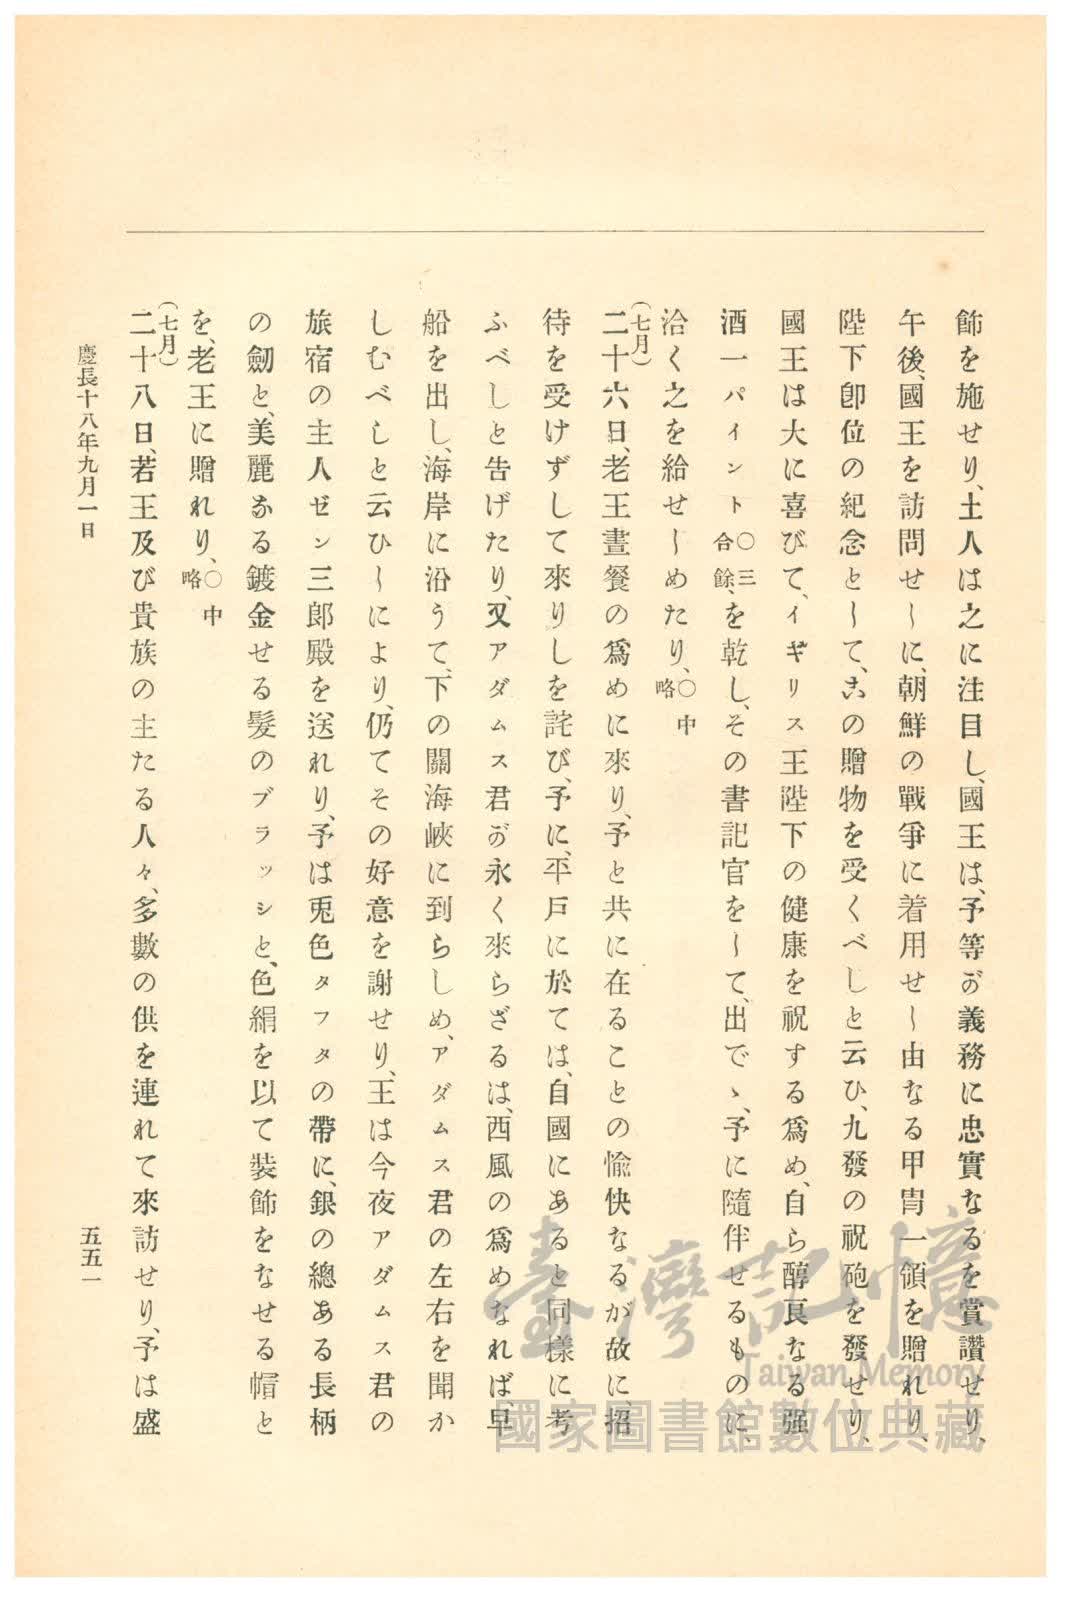 飾を施せり、土人は之に注目し、國王は、予等が義務に忠實なるを賞讚せり、
午後、國王を訪問せしに、朝鮮の戰爭に着用せし由なる甲冑一領を贈れり、
陛下卽位の紀念として、この贈物を受くべしと云ひ、九發の祝砲を發せり、
國王は大に喜びて、イギリス王陛下の健康を祝する爲め、自ら醇良なる强
酒一パイント〇三合餘、を乾し、その書記官をして、出でゝ、予に隨伴せるものに、
洽く之を給せしめたり、〇中略
(七月)
二十六日、老王晝餐の爲めに來り、予と共に在ることの愉快なるが故に、招
待を受けずして來りしを詫び、予に、平戶に於ては、自國にあると同樣に考
ふべしと告げたり、又アダムス君が永く來らざるは、西風の爲めなれば、早
船を出し、海岸に沿うて、下の關海峽に到らしめ、アダムス君の左右を聞か
しむべしと云ひしにより、仍てその好意を謝せり、王は今夜アダムス君の
旅宿の主人ゼン三郞殿を送れり、予は兎色タフタの帶に、銀の總ある長柄
の劒と、美麗なる鍍金せる髮のブラッシと、色絹を以て裝飾をなせる帽と
を、老王に贈れり、〇中略
(七月)
二十八日、若王及び貴族の主たる人々、多數の供を連れて來訪せり、予は盛
慶長十八年九月一日
五五一
臺灣記憶
Taiwan Memory
國家圖書館數位典藏